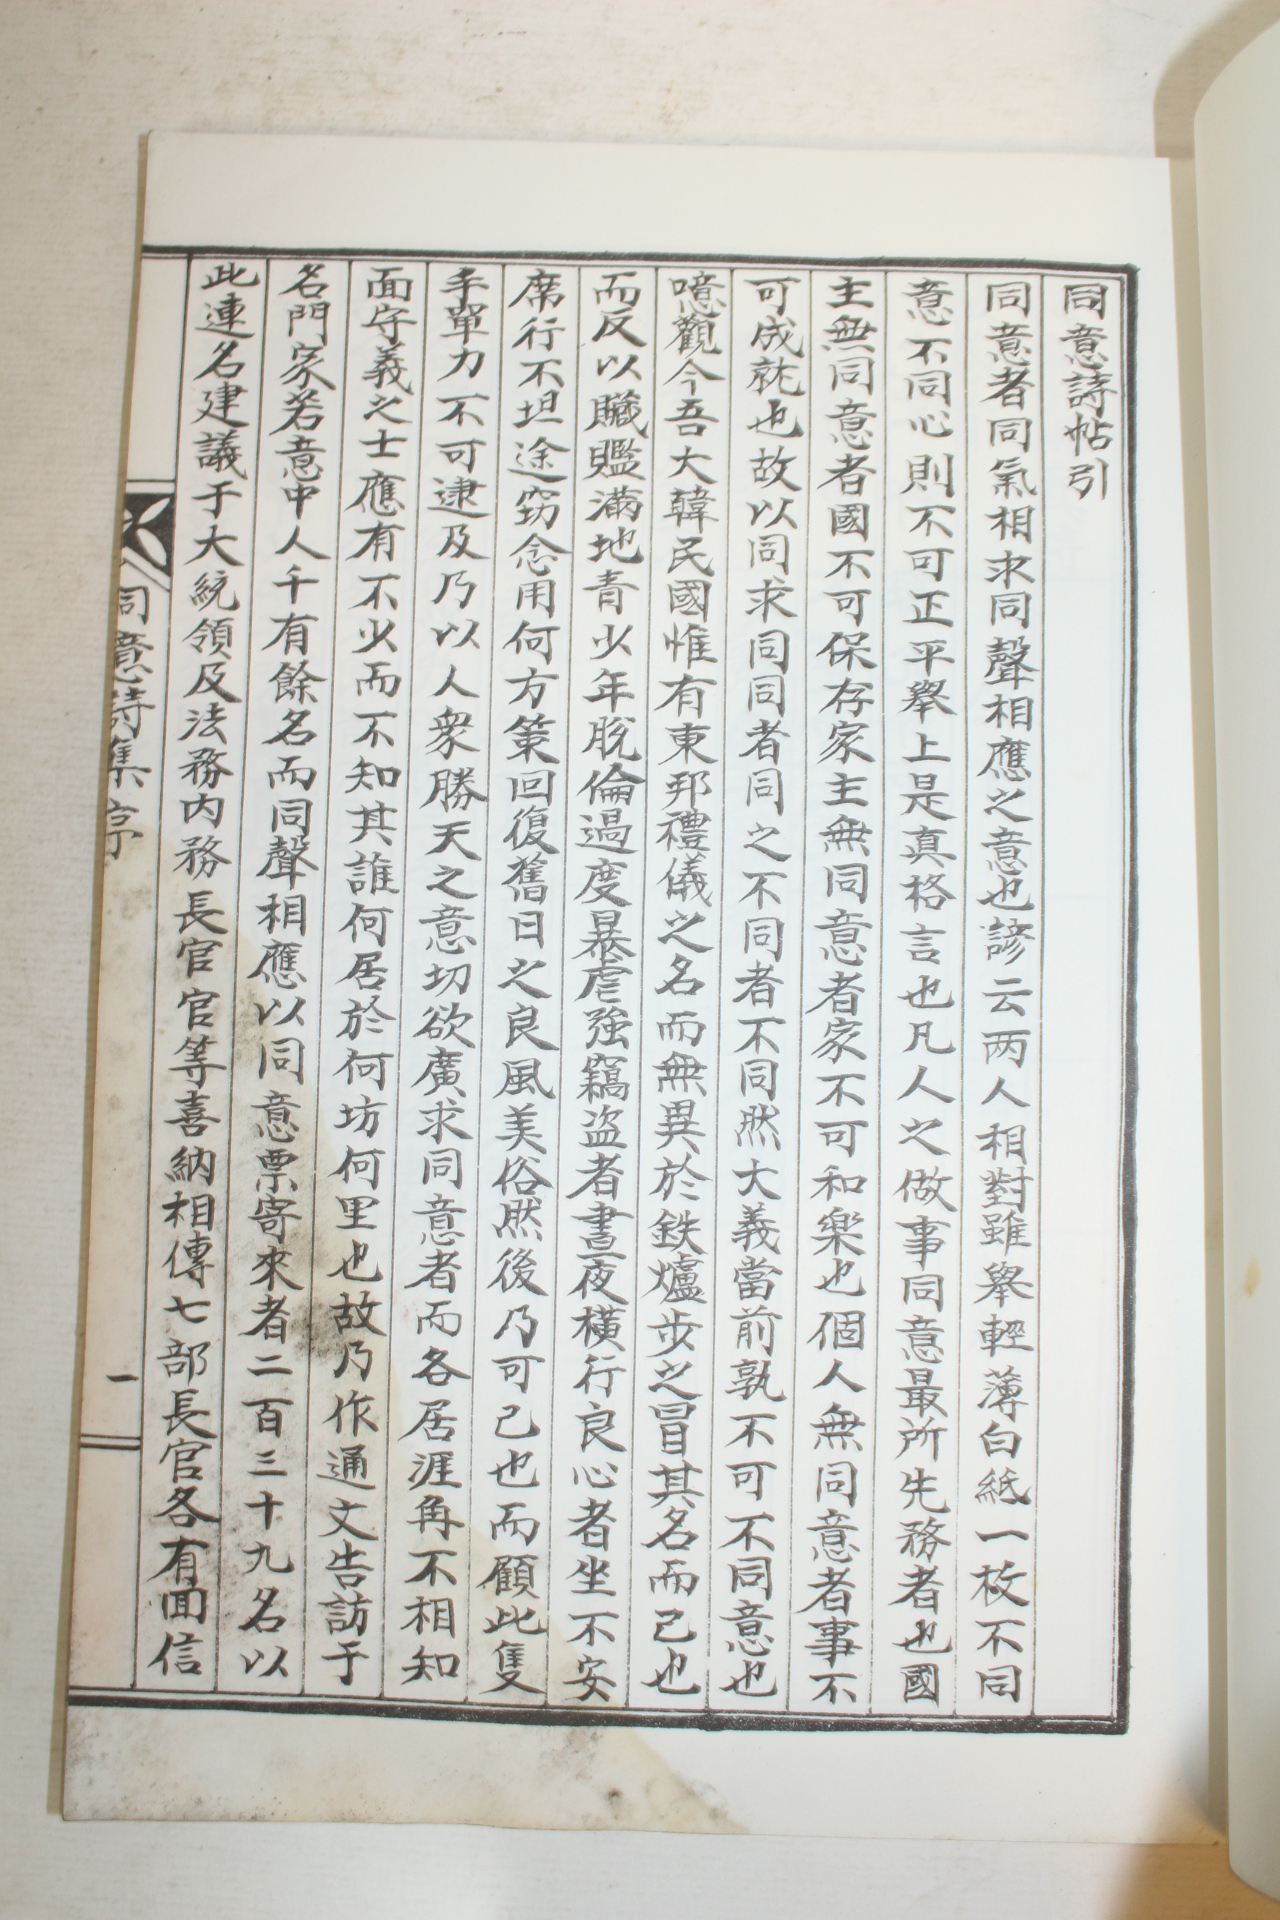 同意詩帖引
同意者同氣相求同聲相應之意也諺云两人相對雖舉輕薄白紙一枚不同
意不同心則不可正平舉上是真格言也凡人之做事同意最所先務者也國
主無同意者國不可保存家主無同意者家不可和樂也個人無同意者事不
可成就也故以同求同同者同之不同者不同然大義當前孰不可不同意也
噫觀今吾大韓民國惟有東邦禮儀之名而無異於鉄爐步之冒其名而已也
而反以贓贓滿地青少年脫倫過度暴虐強竊盜者晝夜橫行良心者坐不安
席行不坦途窃念用何方策回復舊日之良風美俗然後乃可已也而顧此隻
手單力不可逮及乃以人衆勝天之意切欲廣求同意者而各居涯角不相知
面守義之士應有不少而不知其誰何居於何坊何里也故乃作通文告訪于
名門家若意中人千有餘名而同聲相應以同意票寄來者二百三十九名以
此連名建議于大統領及法務內務長官官等喜納相傳七部長官各有面信
同意詩集序
一